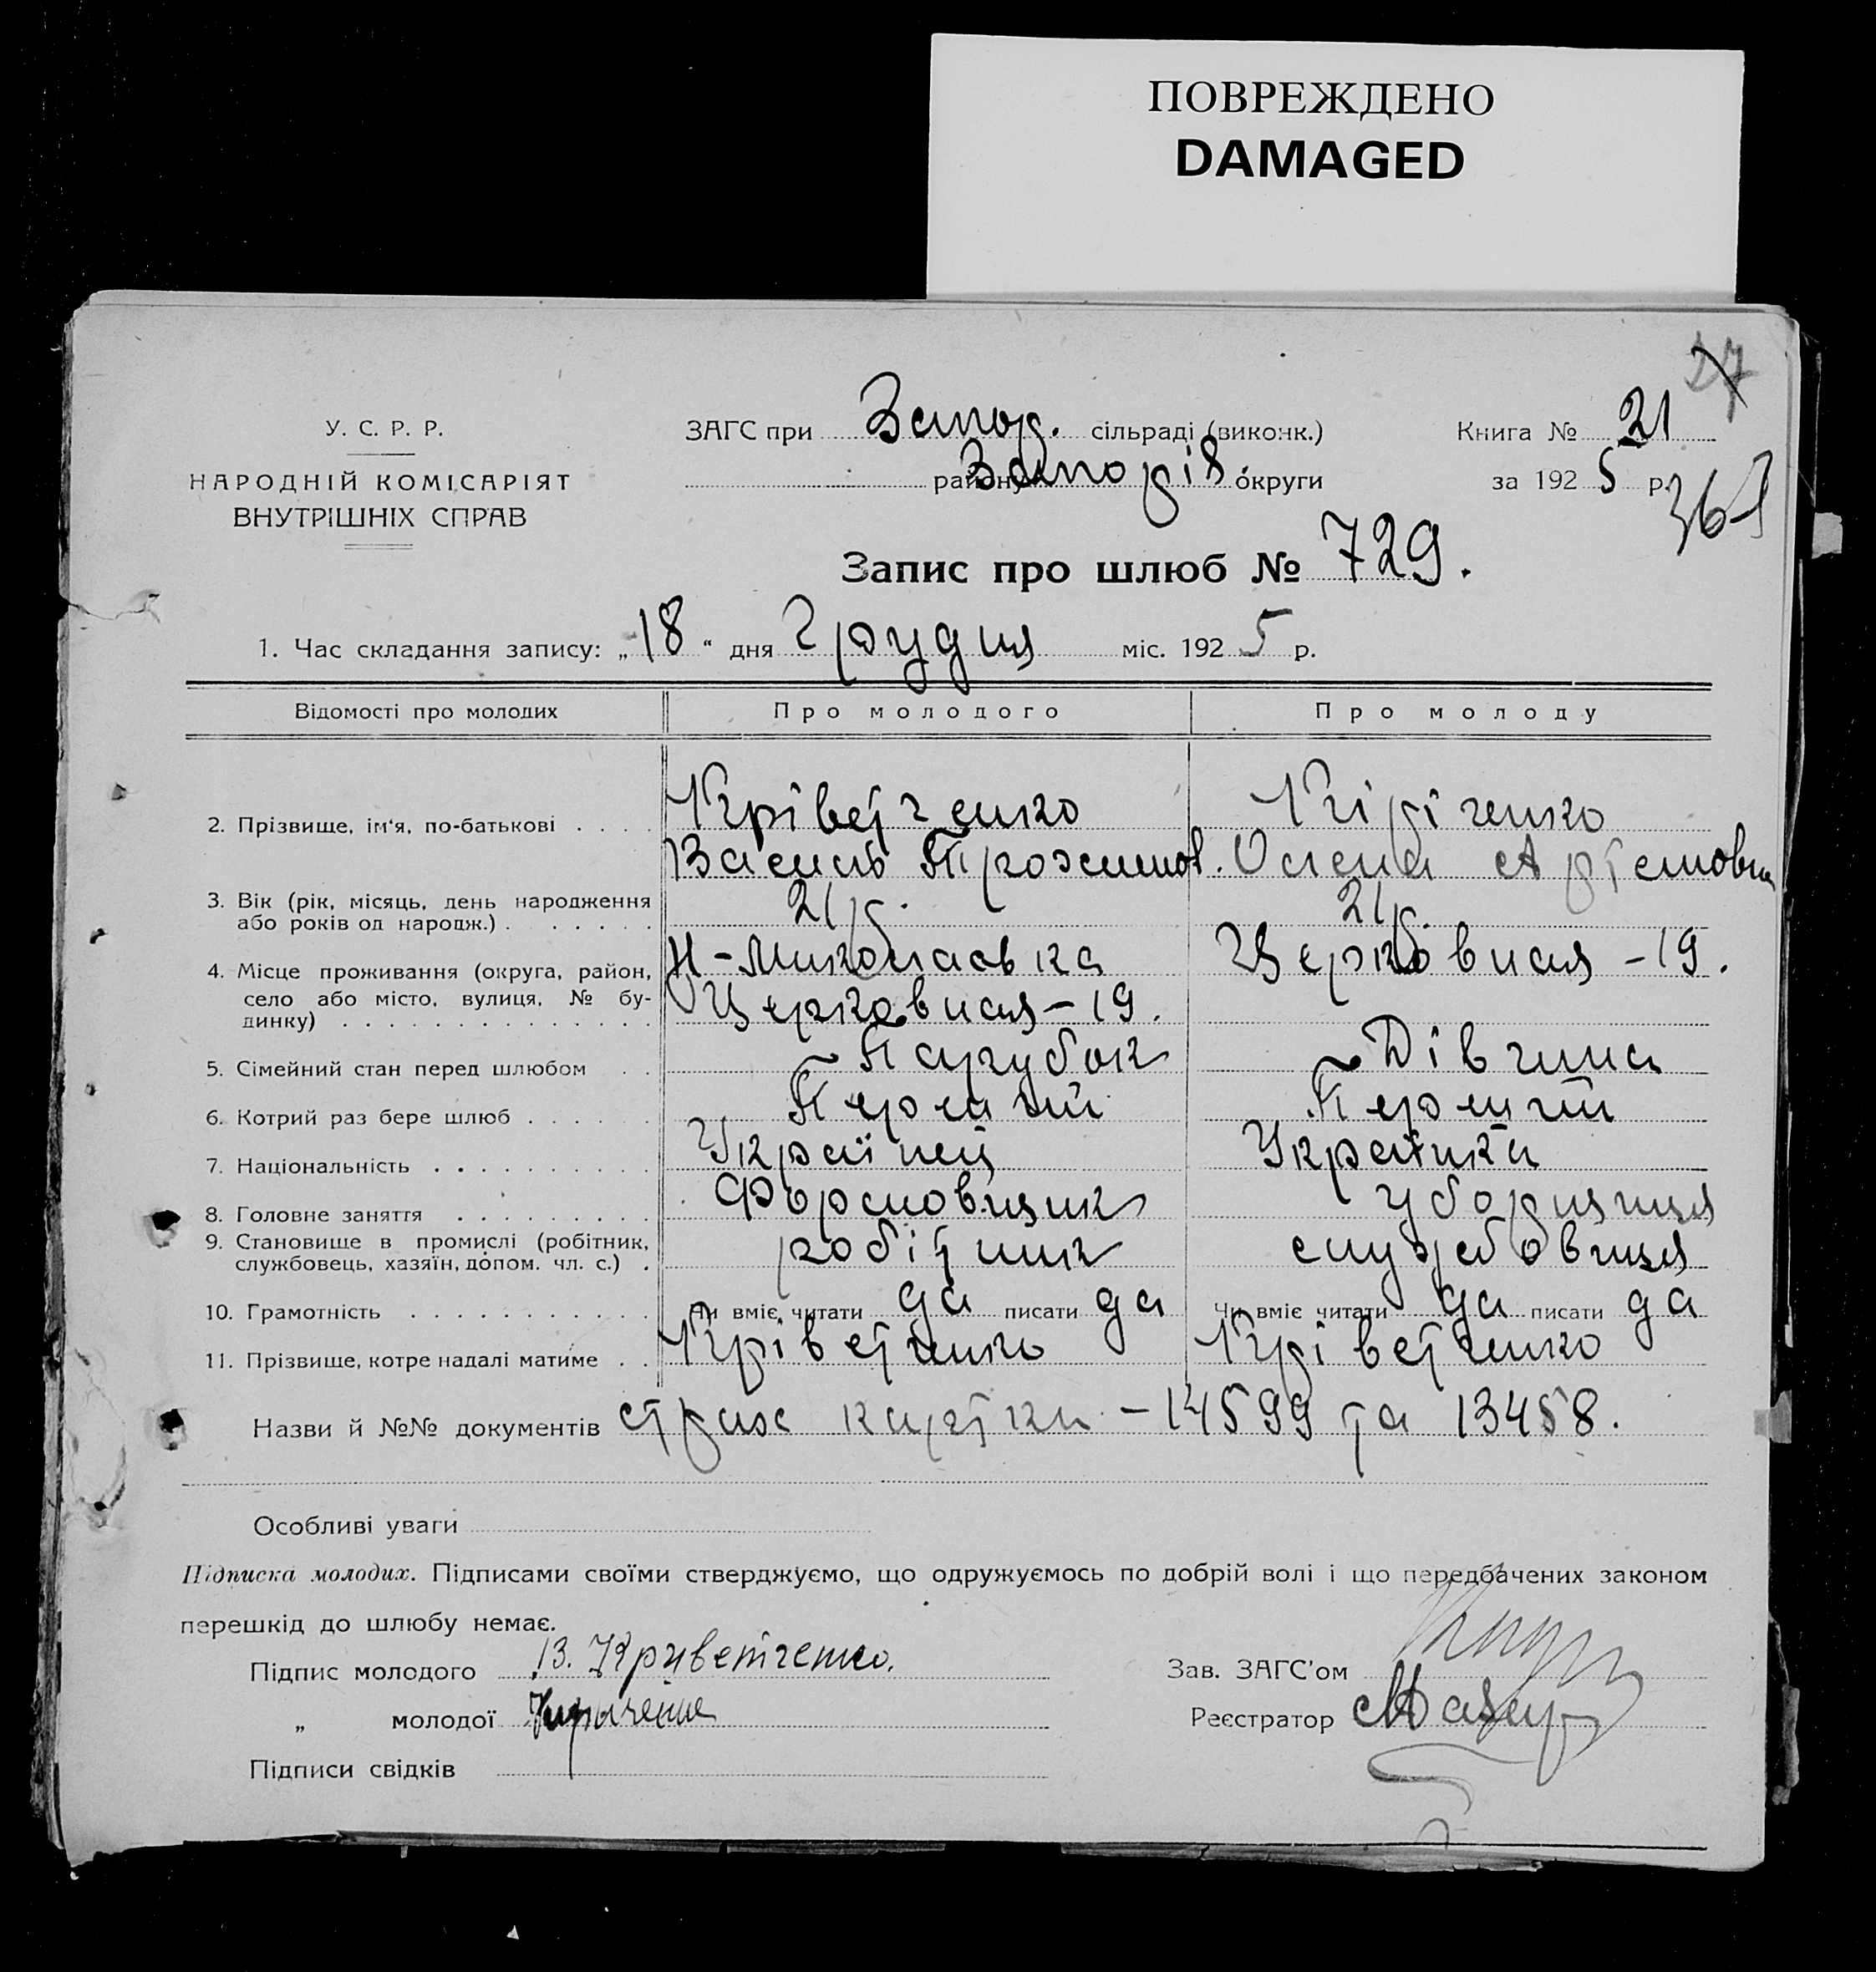 ПОВРЕЖДЕНО
DAMAGED
27
У. С. Р. Р.
НАРОДНІЙ КОМІСАРІЯТ
ВНУТРІШНІХ СПРАВ
ЗАГС при Запор. сільраді (виконк.)
району Запоріз. округи
Книга № 21
за 1925 р.
Запис про шлюб № 729.
1. Час складання запису: „18“ дня Грудня міс. 1925 р.
Відомості про молодих Про молодого Про молоду
2. Прізвище, ім'я, по-батькові Кріветченко Кіріченко
Василь Трохимов. Олена Артемовна
3. Вік (рік, місяць, день народження
або років од народж.) 21 р. 21 р.
4. Місце проживання (округа, район,
село або місто, вулиця, № бу-
динку)
Н-Миколаєвка
Церковная-19.
Церковная-19.
5. Сімейний стан перед шлюбом Парубок Дівчина
6. Котрий раз бере шлюб Перший Перший
7. Національність Українец Українка
8. Головне заняття Формовщик уборщиця
9. Становище в промислі (робітник,
службовець, хазяїн, допом. чл. с.) робітник службовиця
10. Грамотність Чи вміє читати да писати да Чи вміє читати да писати да
11. Прізвище, котре надалі матиме Кріветченко Кріветченко
Назви й №№ документів страх картки - 14599 та 13458.
Особливі уваги
Підписка молодих. Підписами своїми стверджуємо, що одружуємось по добрій волі і що передбачених законом
перешкід до шлюбу немає.
Підпис молодого В. Криветченко.
„ молодої Кириченко
Підписи свідків
Зав. ЗАГС'ом
Реєстратор